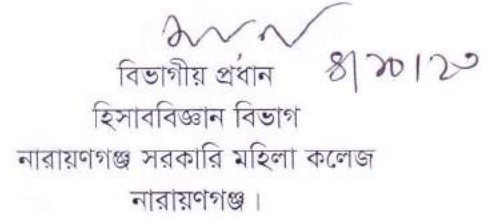 বিভাগীয় প্রধান
হিসাববিজ্ঞান বিভাগ
নারায়ণগঞ্জ সরকারি মহিলা কলেজ
নারায়ণগঞ্জ।